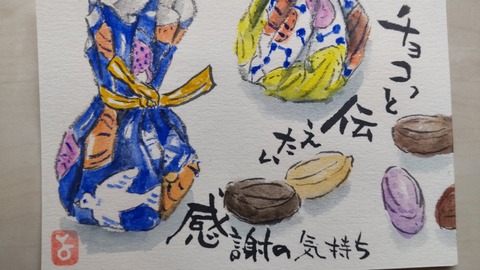 チョコっと
伝
えたい
感謝の気持ち